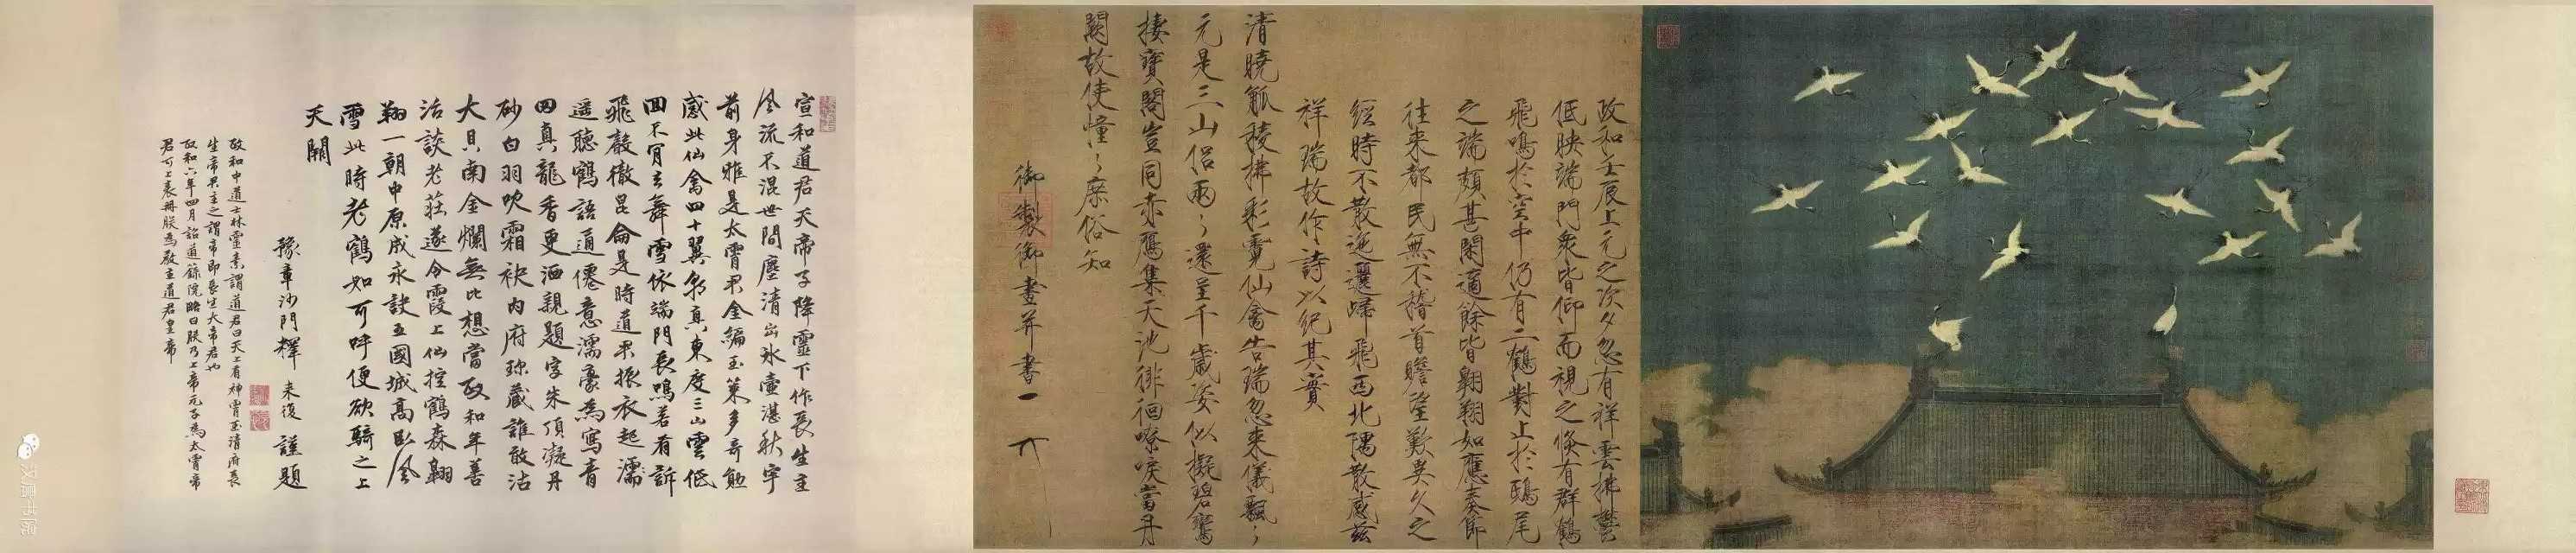 政和壬辰上元之次夕忽有祥雲拂鬱
低映端門衆皆仰而視之倏有群鶴
飛鳴於空中仍有二鶴對止於鴟尾
之端頗甚閑適餘皆翱翔如應奏節
往來都民無不稽首瞻望歎異久之
經時不散迤邐歸飛西北隅散感茲
祥瑞故作詩以紀其實
清曉觚稜拂彩霓仙禽告瑞忽來儀飄〻
元是三山侶兩〻還呈千歲姿似擬碧鸞
棲寶閣豈同赤鴈集天池徘徊嘹唳當丹
闕故使憧〻庶俗知
御製御畫并書
宣和道君天帝子降靈下作長生主
風流不混世間塵清出冰壺湛秋宇
前身雅是太霄君金編玉葉多奇勳
感此仙禽四十翼朝真東度三山雲低
回不肯去舞雪依端門長鳴若有訴
飛聲徹昆侖是時道君振衣起濡
遥聽鶴語通僊意濡豪為寫青
田真龍香更洒親題字朱頂凝丹
砂白羽吹霜袂内府珍藏誰敢沽
大貝南金爛無比想當政和年善
治談老莊遂令霞上仙控鶴森翱
翔一朝中原成永訣五國城高臥風
雪此時老鶴如可呼便欲騎之上
天闕
豫章沙門釋 来復 謹題
政和中道士林靈素謂道君曰天上有神霄玉清府長
生帝君主之謂帝即長生大帝君也
政和六年四月詔道録院略曰朕乃上帝元子為太霄帝
君可上表冊朕為教主道君皇帝